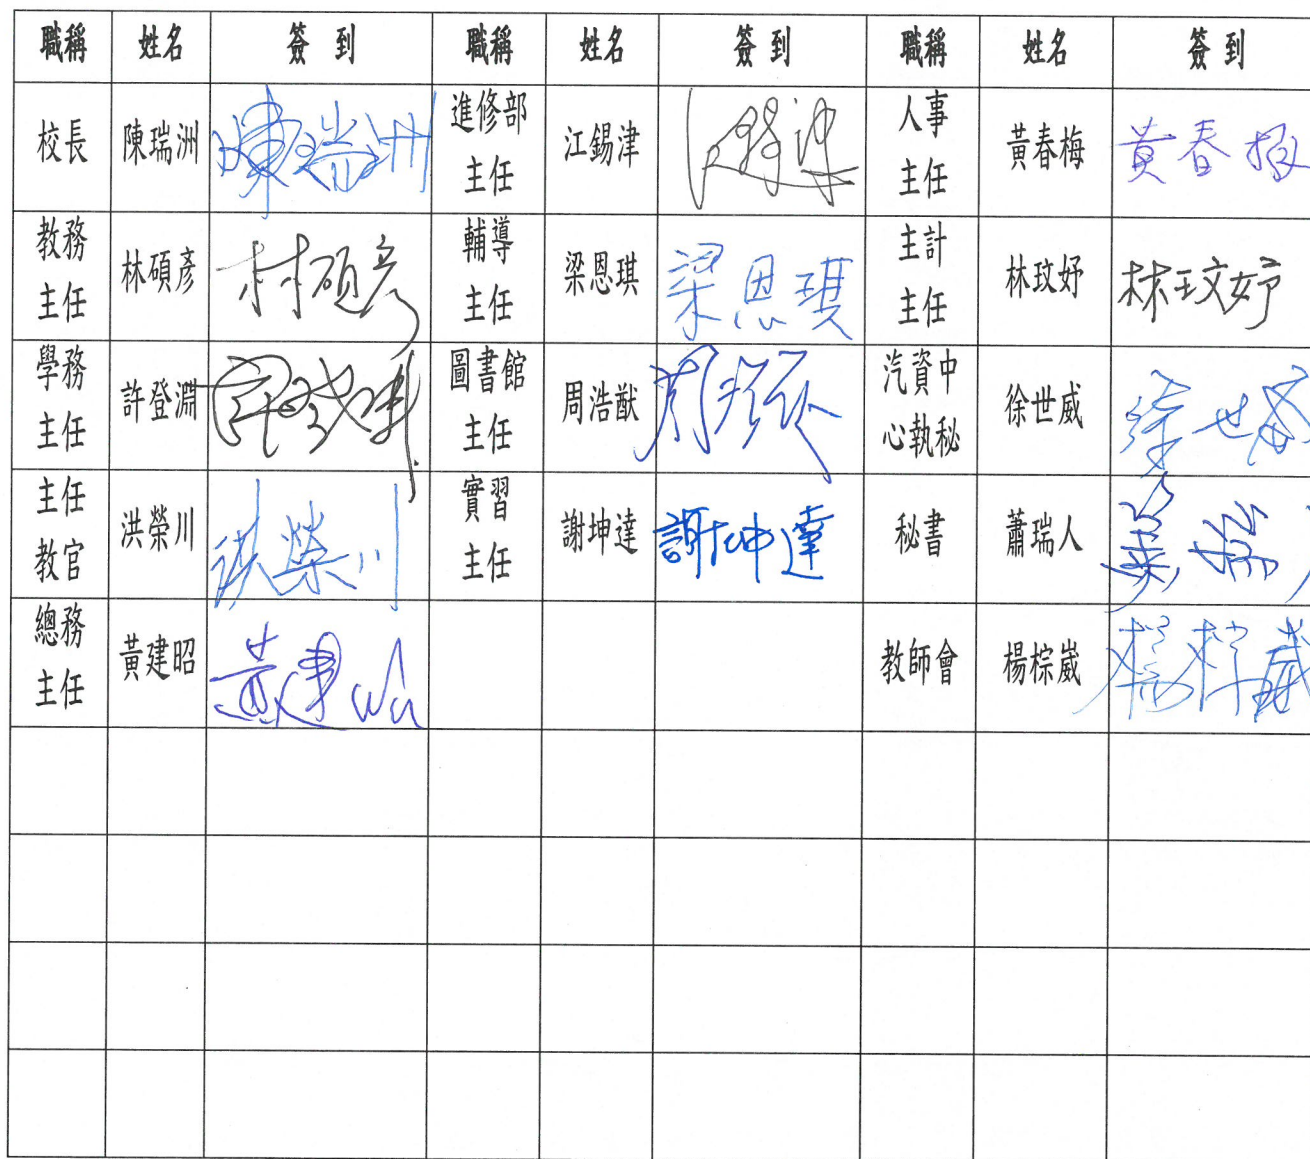 職稱 姓名 簽到 職稱 姓名 簽到 職稱 姓名 簽到
校長 陳瑞洲 陳瑞洲 進修部主任 江錫津 江錫津 人事主任 黃春梅 黃春梅
教務主任 林碩彥 林碩彥 輔導主任 梁恩琪 梁恩琪 主計主任 林玟妤 林玟妤
學務主任 許登淵 圖書館主任 周浩猷 周浩猷 汽資中心執秘 徐世威 徐世威
主任教官 洪榮川 洪榮川 實習主任 謝坤達 謝坤達 秘書 蕭瑞人 蕭瑞人
總務主任 黃建昭 黃建昭 教師會 楊棕崴 楊棕崴